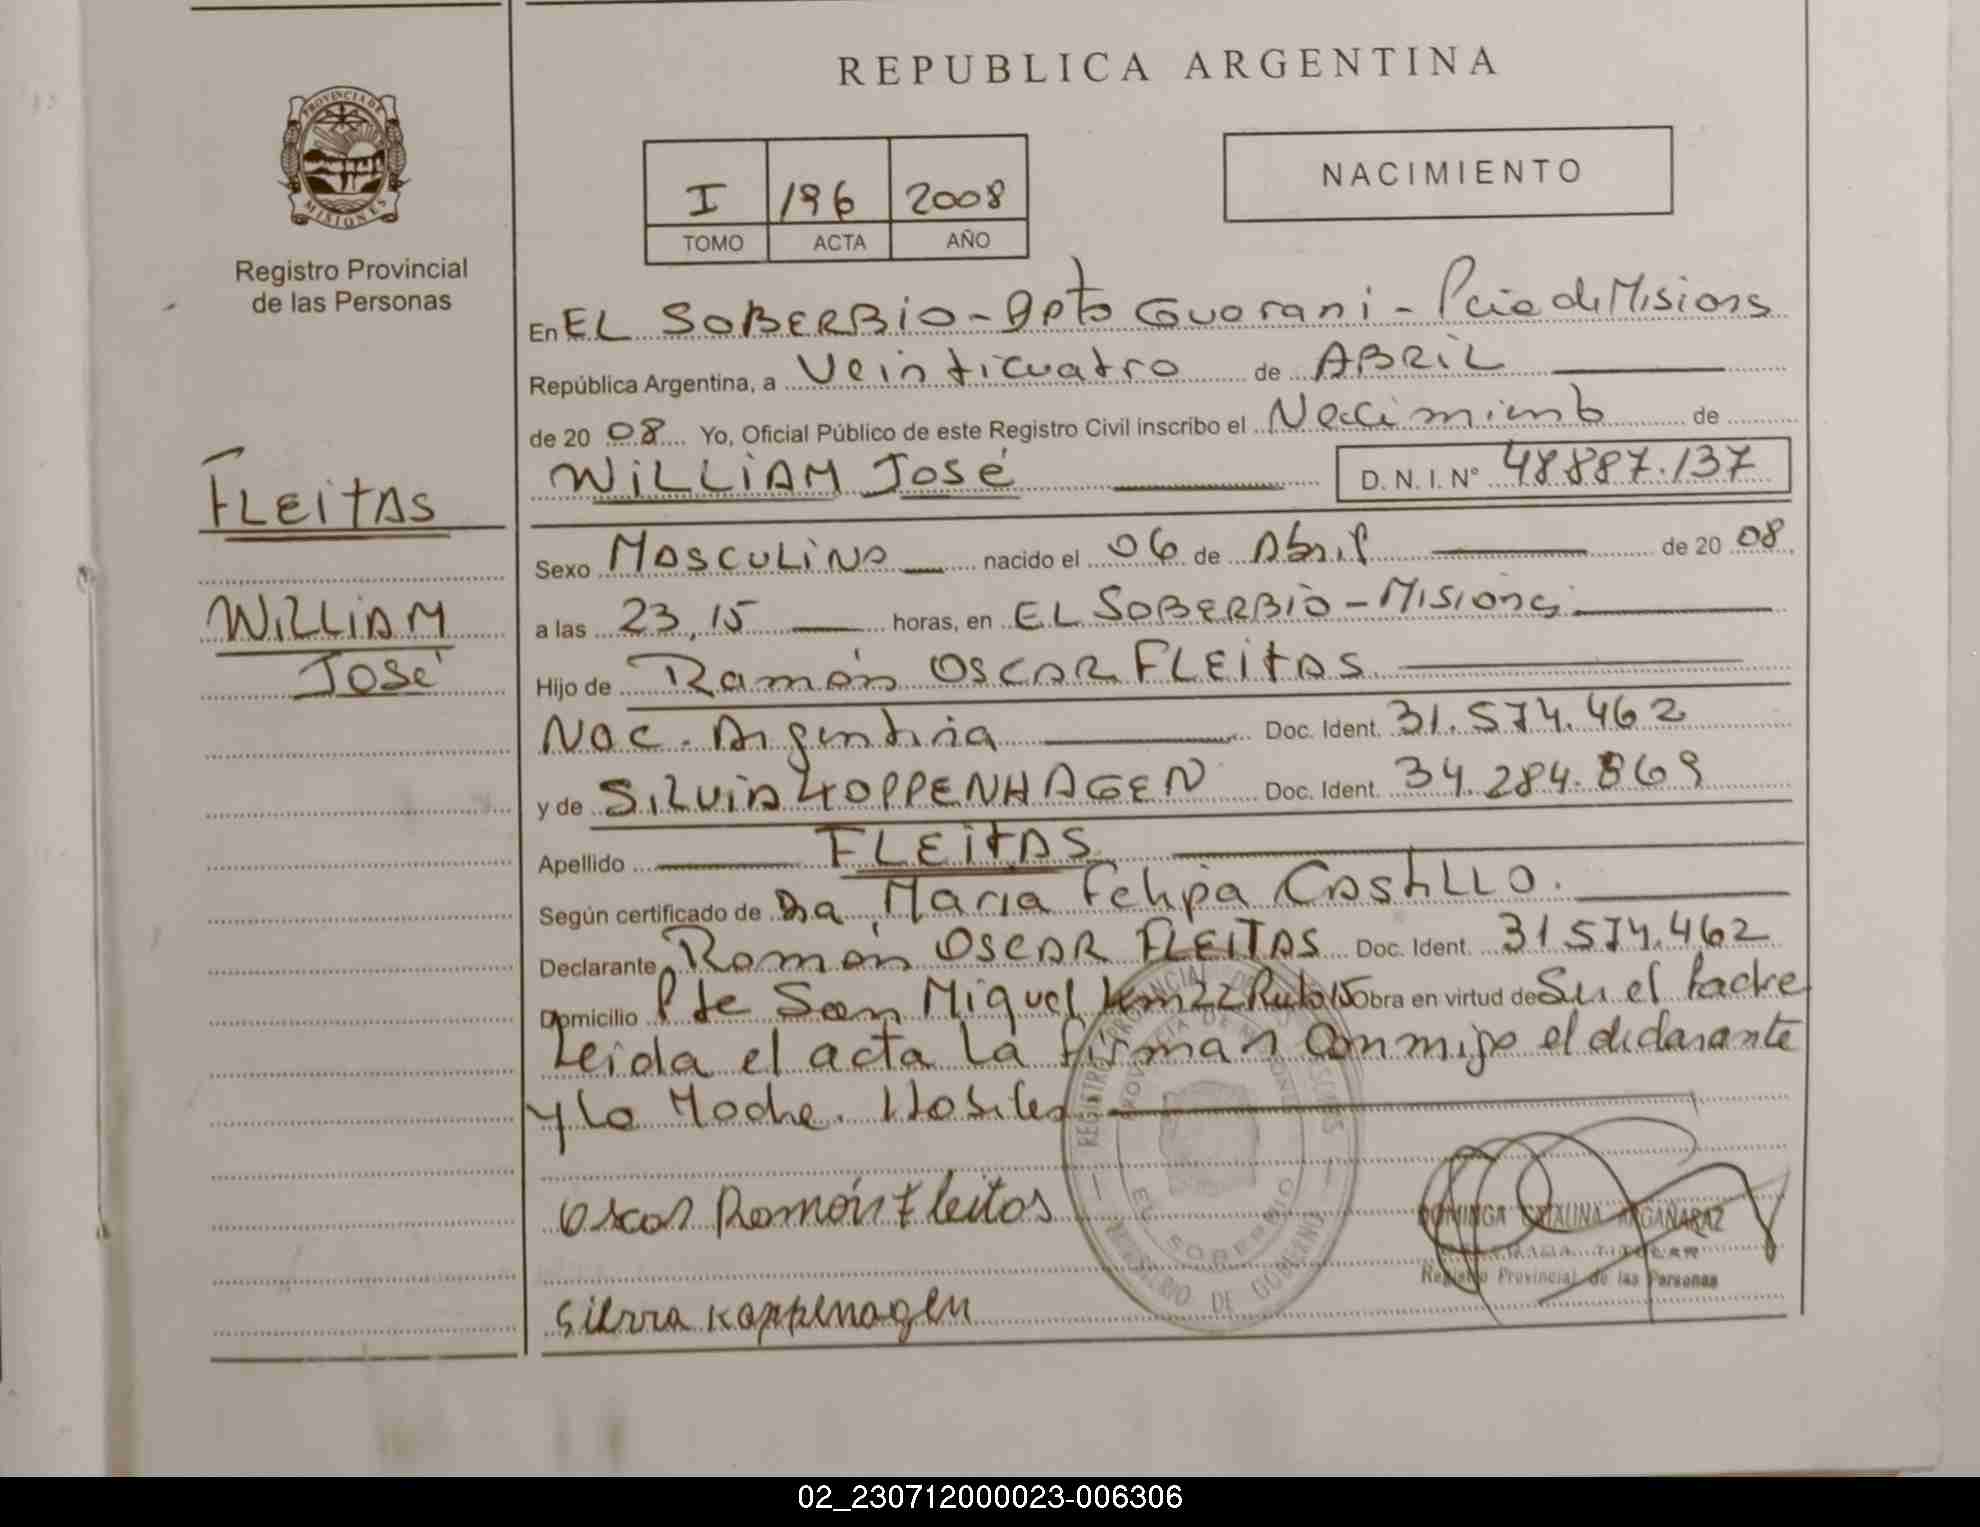 REPUBLICA ARGENTINA
PROVINCIA DE
MISIONES
Registro Provincial
de las Personas
I 196 2008
TOMO ACTA AÑO
NACIMIENTO
En EL SOBERBiO - Dpto Guarani - Pcia de Misions
República Argentina, a Veinticuatro de ABRiL
de 20 08 Yo, Oficial Público de este Registro Civil inscribo el Nacimiento de
WiLLiAM José D. N. I. Nº 48887.137
FLEitAS
WiLLiAM
José
Sexo MASCULiNO nacido el 06 de Abril de 20 08
a las 23,15 horas, en EL SOBERBiO - Misions
Hijo de Ramón OSCAR FLEitAS
Nac. Argentina Doc. Ident. 31.574.462
y de SiLViA KOPPENHAGEN Doc. Ident. 34.284.869
Apellido FLEitAS
Según certificado de Dra Maria Felipa CastiLLO.
Declarante Ramón OSCAR FLEITAS Doc. Ident. 31 574.462
Domicilio Pje San Miguel Km 22 Ruta 15 Obra en virtud de Ser el Padre
Leida el acta la firman conmigo el declarante
y la Madre.
Oscar Ramón Fleitas
Silvia Koppenagen
EL SOBERBIO
MINISTERIO DE GOBIERNO
DOMINGA CATALINA ARGAÑARAZ
TITULAR
Registro Provincial de las Personas
02_230712000023-006306